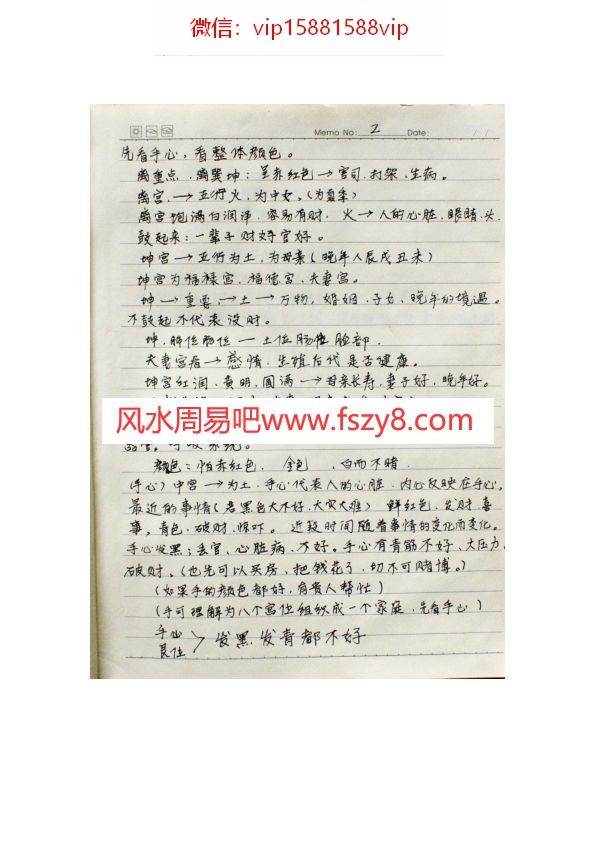 微信：vip15881588vip
Memo No: 2 Date: / /
先看手心，看整体颜色。
离重点，离巽坤：呈赤红色→官司.打架.生病。
离宫.→五行火，为中女。(为夏季)
离宫饱满白润泽.容易有财. 火→人的心脏.眼睛.头.
鼓起来：一辈子财好官好。
坤宫→五行为土，为母亲(晚年人辰戌丑未)
坤宫为福禄宫，福德宫.夫妻宫。
坤→重要，→土→万物，婚姻.子女、晚年的境遇。
不鼓起不代表没财。
坤. 脾位肠位—土位肠 脸部.
夫妻宫看→感情.生殖后代是否健康。
坤宫红润.黄明.圆满→母亲长寿，妻子好，晚年好。
风水周易吧www.fszy8.com
器官.呼吸系统。
颜色：怕赤红色. 金色 ，白而不暗.
(手心)中宫→为土.手心代表人的心脏.内心反映在手心,
最近的事情(若黑色大不好.大灾大难) 鲜红色，发财.喜
事，青色.破财.惊吓。 近段时间随着事情的变化而变化。
手心发黑：丢官，心脏病.不好。手心有青筋不好、大压力.
破财。(也先可以买房、把钱花了.切不可赌博。)
(如果手的颜色都好，有贵人帮忙)
(手可理解为八个宫位组织成一个家庭，先看手心)
手心
艮位 > 发黑发青都不好